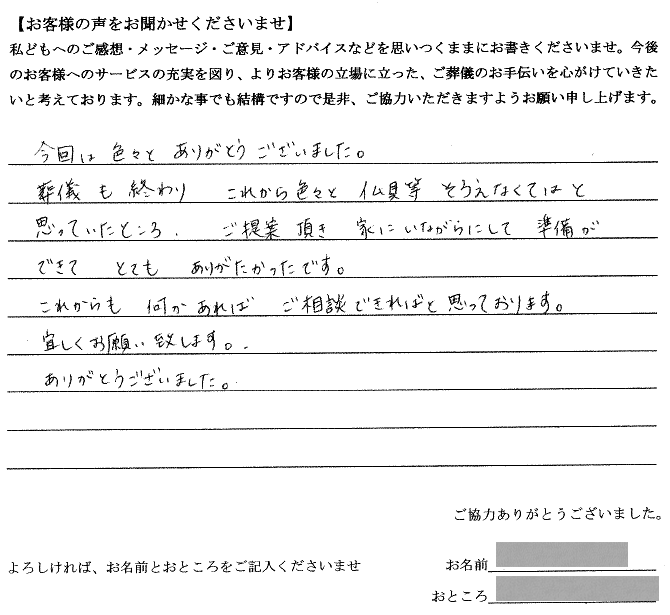 【お客様の声をお聞かせくださいませ】
私どもへのご感想・メッセージ・ご意見・アドバイスなどを思いつくままにお書きくださいませ。今後
のお客様へのサービスの充実を図り、よりお客様の立場に立った、ご葬儀のお手伝いを心がけていきた
いと考えております。細かな事でも結構ですので是非、ご協力いただきますようお願い申し上げます。
今回は 色々と ありがとうございました。
葬儀も 終わり これから色々と 仏具等 そろえなくてはと
思っていたところ、 ご提案 頂き 家にいながらにして 準備が
できて とても ありがたかったです。
これからも 何かあれば ご相談できればと思っております。
宜しくお願い致します。
ありがとうございました。
ご協力ありがとうございました。
よろしければ、お名前とおところをご記入くださいませ お名前
おところ